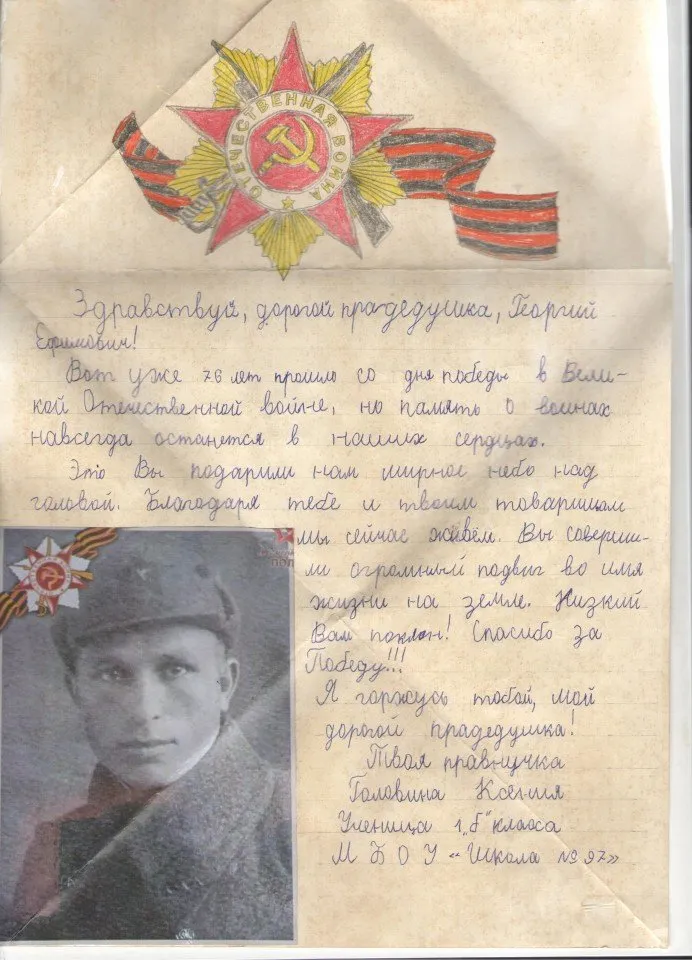 ОТЕЧЕСТВЕННАЯ ВОЙНА
Здравствуй, дорогой прадедушка, Георгий
Ефимович!
Вот уже 76 лет прошло со дня победы в Вели-
кой Отечественной войне, но память о воинах
навсегда останется в наших сердцах.
Это Вы подарили нам мирное небо над
головой. Благодаря тебе и твоим товарищам
мы сейчас живём. Вы соверши-
ли огромный подвиг во имя
жизни на земле. Низкий
Вам поклон! Спасибо за
Победу!!!
Я горжусь тобой, мой
дорогой прадедушка!
Твоя правнучка
Головина Ксения
Ученица 1 „б" класса
МБОУ «Школа № 97»